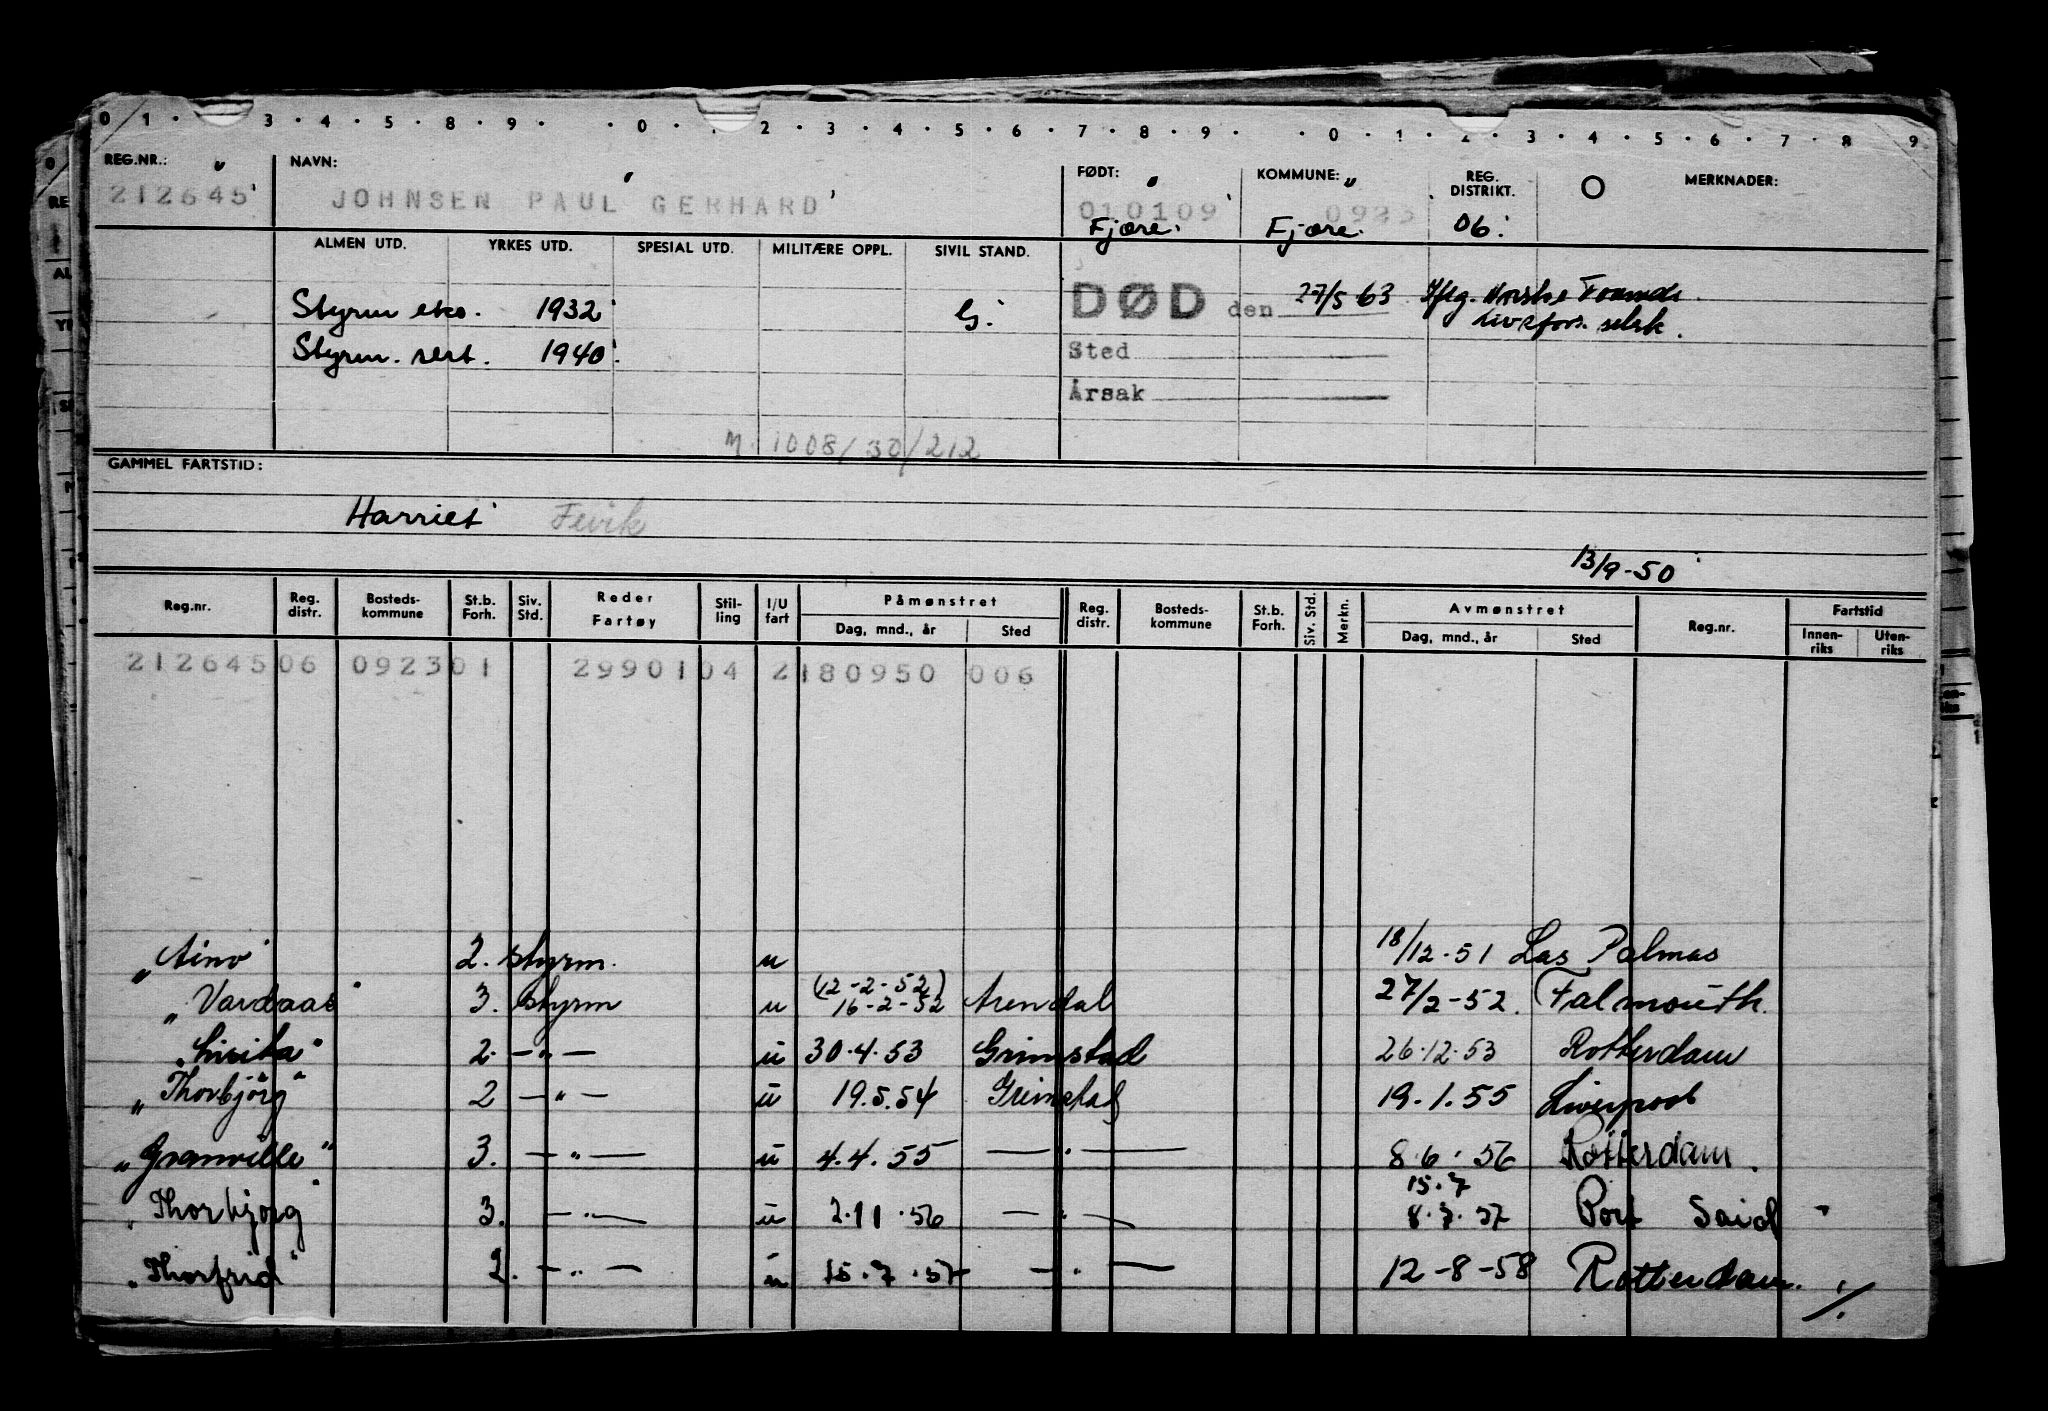 0 1 · 3 · 4 · 5 · 8 · 9 · · 0 · · 2 · 3 · 4 · 5 · 6 · 7 · 8 · 9 · · 0 · 1 · 2 · 3 · 4 · 5 · 6 · 7 · 8 · 9
REG.NR.: NAVN: FØDT: KOMMUNE: REG. DISTRIKT. MERKNADER:
212645 JOHNSEN PAUL GERHARD 010109 0923
Fjære. Fjære. 06.
ALMEN UTD. YRKES UTD. SPESIAL UTD. MILITÆRE OPPL. SIVIL STAND.
Styrm eks. 1932 G. DØD den 27/5 63 Iflg. Norske Folks
Livsfors. selsk.
Styrm. sert. 1940. Sted
Årsak
M. 1008/30/212
GAMMEL FARTSTID:
Harriet Fevik
13/9-50
Reg.nr. Reg. distr. Bosteds- kommune St.b. Forh. Siv. Std. Reder Fartøy Stil- ling I/U fart Påmønstret Dag, mnd., år Sted Reg. distr. Bosteds- kommune St.b. Forh. Siv. Std. Merkn. Avmønstret Dag, mnd., år Sted Reg.nr. Fartstid Innen- riks Uten- riks
212645 06 0923 01 29901 04 2 180950 006
"Aino" 2. styrm. u 18/12-51 Las Palmas
"Vardaas" 3. styrm u (12-2-52) 16-2-52 Arendal 27/2-52. Falmouth.
2. —"— u 30.4.53 Grimstad 26.12.53 Rotterdam
"Thorbjörg" 2 —"— u 19.5.54 Grimstad 19.1.55 Liverpool
"Granville" 3. —"— u 4.4.55 —"— 8.6.56 Rotterdam.
15.7
"Thorbjørg" 3. —"— u 2.11.56 —"— 8.7.57 Port Said
"Thorfrid" 2. —"— u 15.7.57 —"— 12-8-58 Rotterdam. ./.